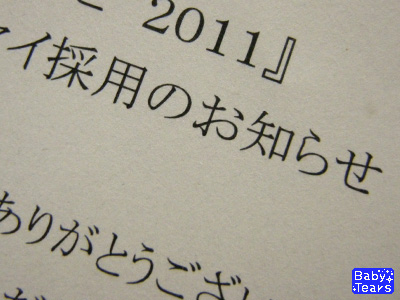 2011』
イ採用のお知らせ
ありがとうござい
Baby
Tears